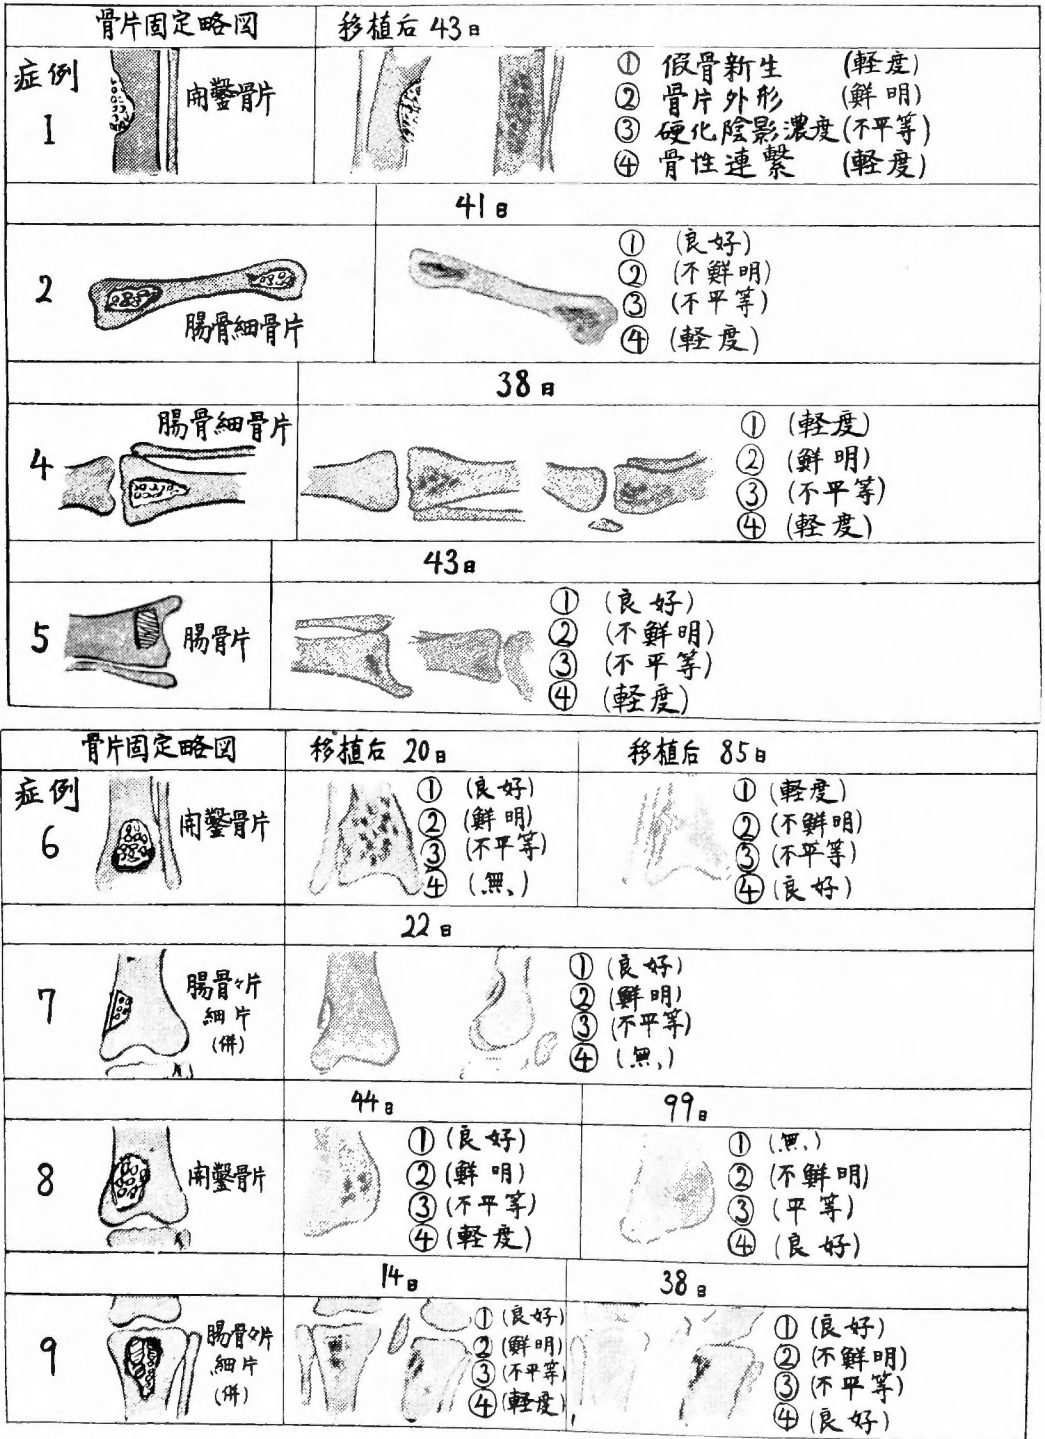 骨片固定略図 移植后 43日
症例
1
開鑿骨片
① 假骨新生 (軽度)
② 骨片外形 (鮮明)
③ 硬化陰影濃度(不平等)
④ 骨性連繫 (軽度)
41日
2
腸骨細骨片
① (良好)
② (不鮮明)
③ (不平等)
④ (軽度)
38日
4
腸骨細骨片
① (軽度)
② (鮮明)
③ (不平等)
④ (軽度)
43日
5
腸骨片
① (良好)
② (不鮮明)
③ (不平等)
④ (軽度)
骨片固定略図 移植后 20日 移植后 85日
症例
6
開鑿骨片
① (良好)
② (鮮明)
③ (不平等)
④ (無)
① (軽度)
② (不鮮明)
③ (不平等)
④ (良好)
22日
7
腸骨々片
細片
(併)
① (良好)
② (鮮明)
③ (不平等)
④ (無)
44日 99日
8
開鑿骨片
① (良好)
② (鮮明)
③ (不平等)
④ (軽度)
① (無)
② (不鮮明)
③ (平等)
④ (良好)
14日 38日
9
腸骨々片
細片
(併)
① (良好)
② (鮮明)
③ (不平等)
④ (軽度)
① (良好)
② (不鮮明)
③ (不平等)
④ (良好)